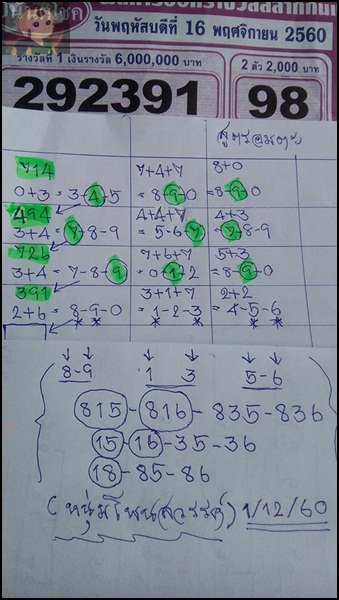 วันพฤหัสบดีที่ 16 พฤศจิกายน 2560
รางวัลที่ 1 เงินรางวัล 6,000,000 บาท
2 ตัว 2,000 บาท
292391 98
สูตรอมตะ
714 7+4+7 8+0
0+3 = 3-4-5 = 8-9-0 = 8-9-0
494 4+4+7 4+3
3+4 = 7-8-9 = 5-6-7 = 7-8-9
726 7+6+7 5+3
3+4 = 7-8-9 = 0-1-2 = 8-9-0
391 3+1+7 2+2
2+6 = 8-9-0 = 1-2-3 = 4-5-6
8-9 1 3 5-6
815-816-835-836
15-16-35-36
18-85-86
(หนุ่มโพนสวรรค์) 1/12/60